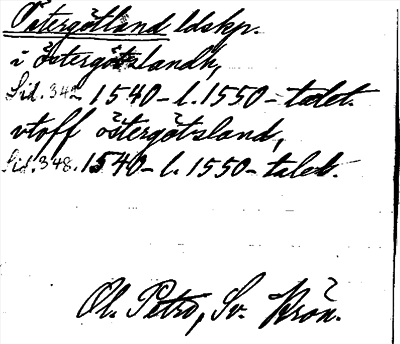 Östergötland ldskp.
i östergötslandh,
Sid. 342 1540 - l. 1550 - talet.
vtoff östergötsland,
Sid. 348. 1540 - l. 1550 - talet.
Ol. Petro, Sv. Krön.